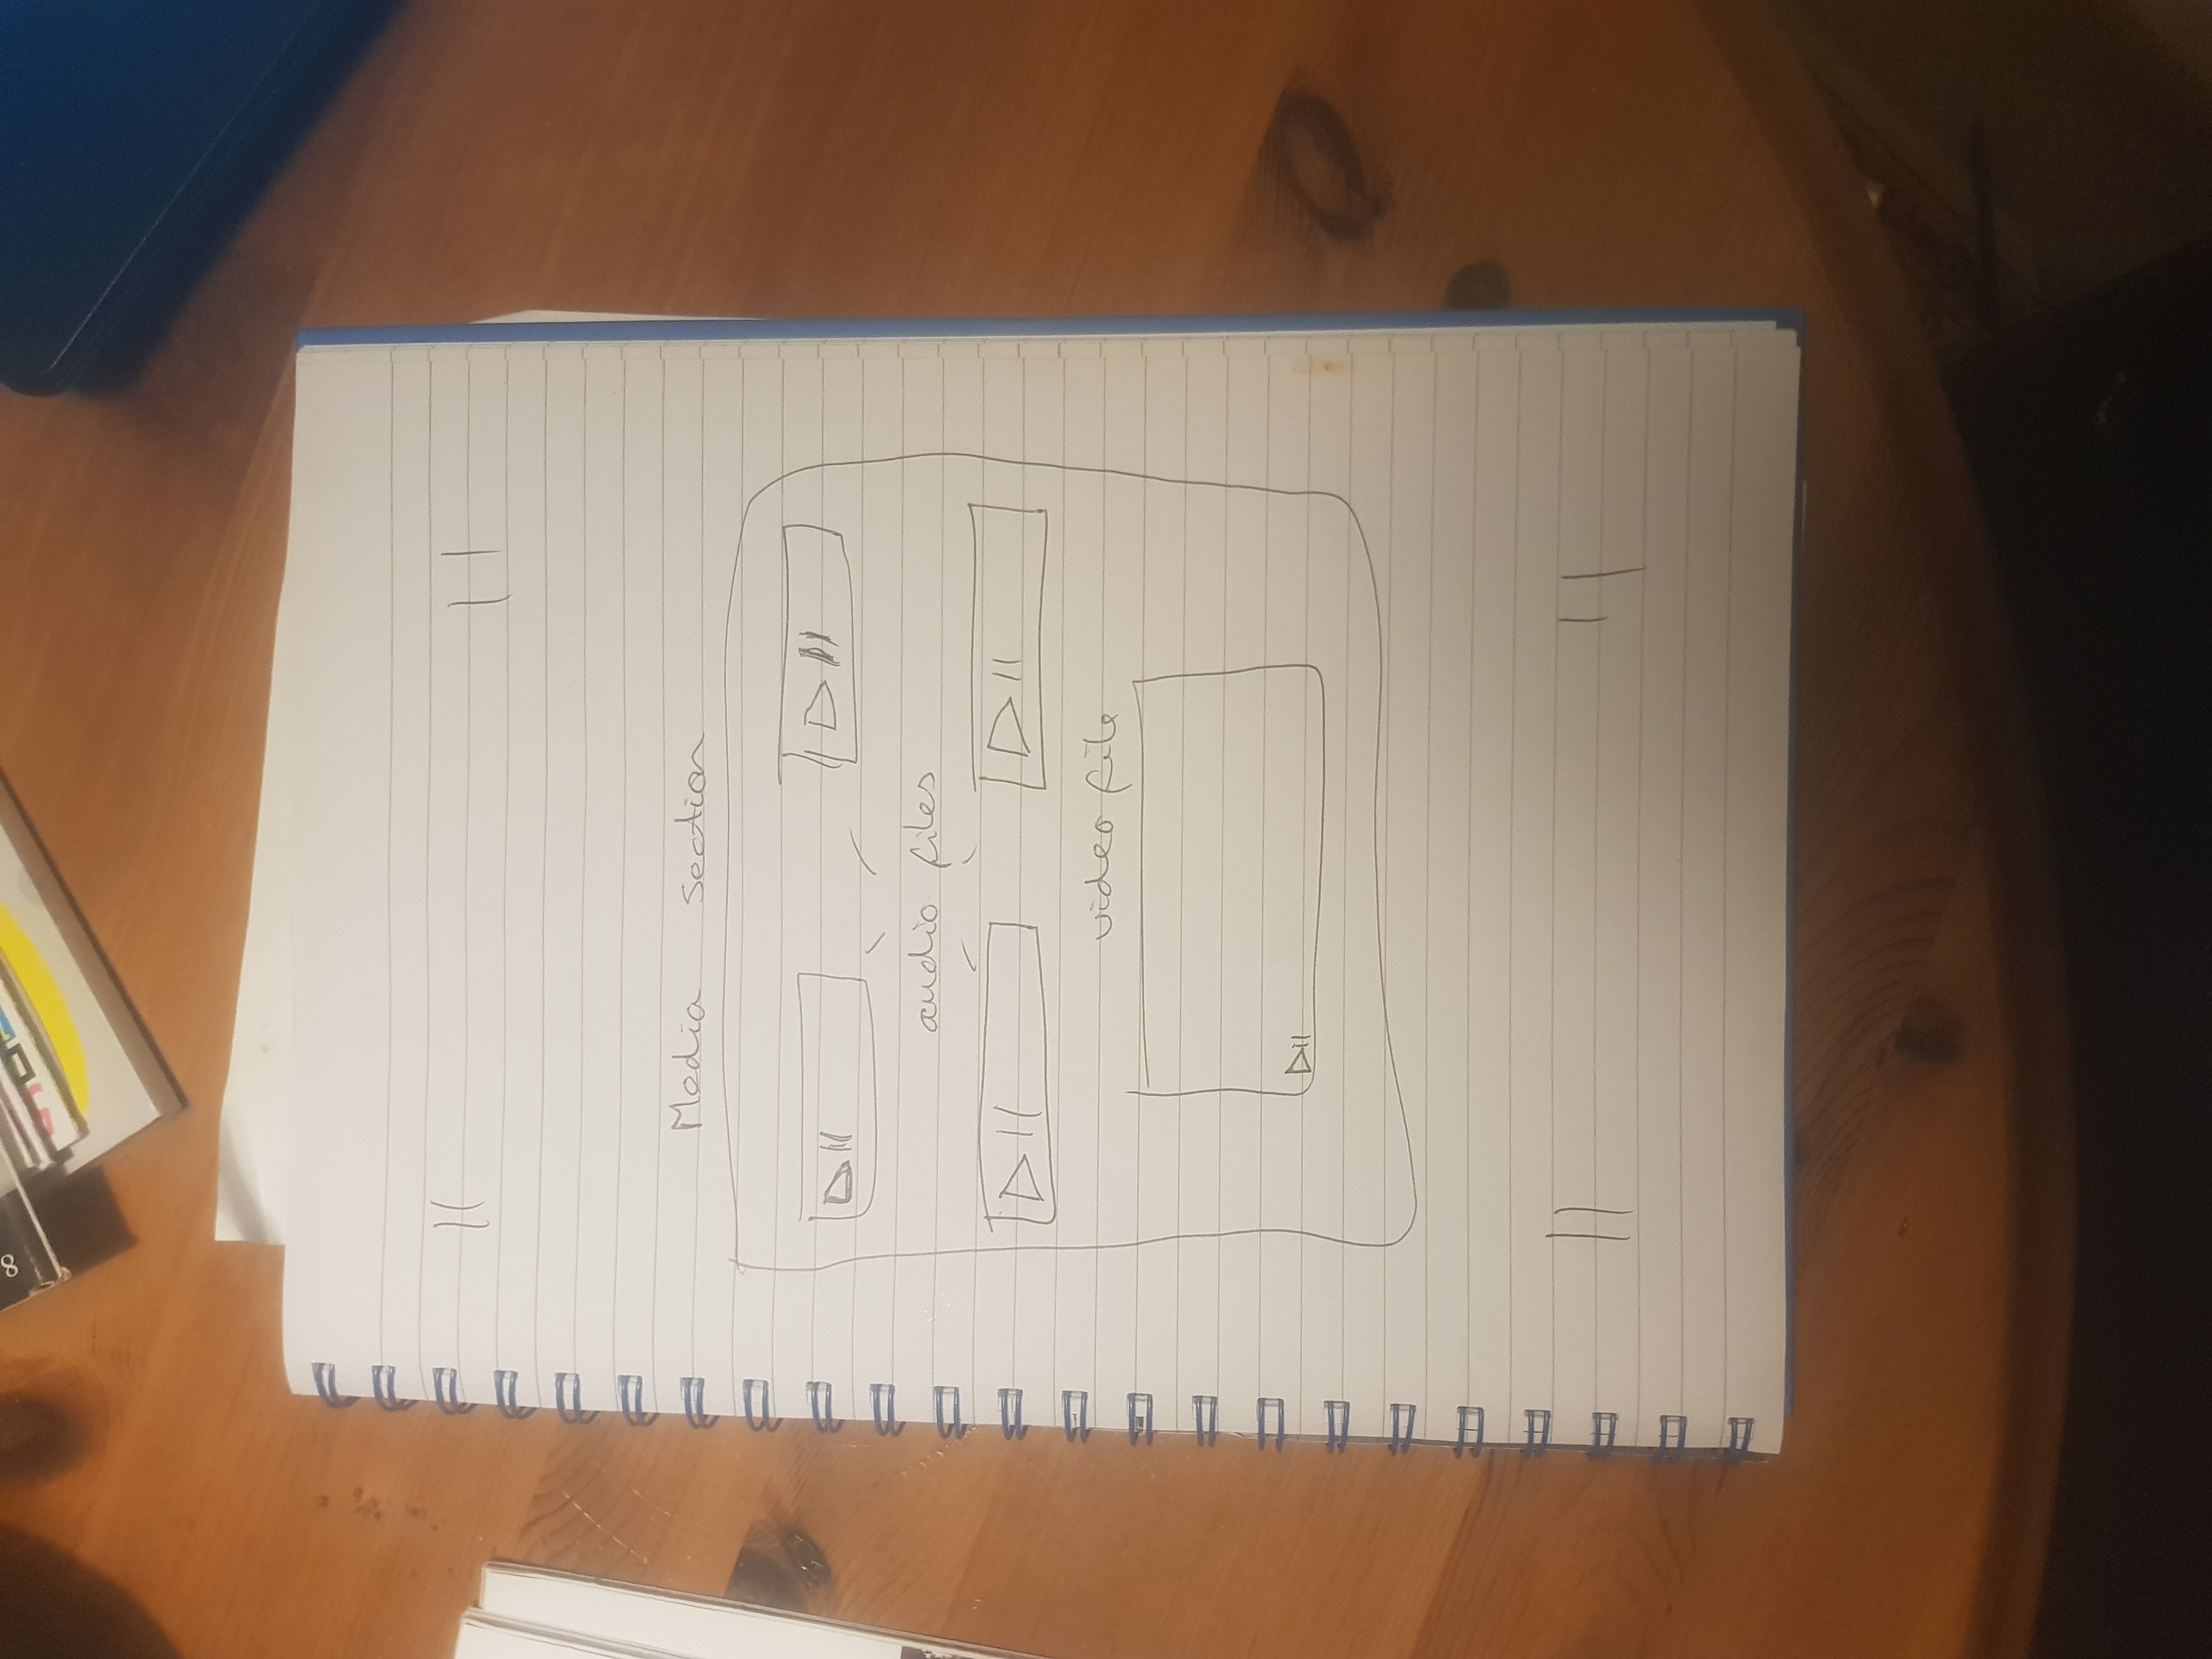 8
Media section
audio files
video file